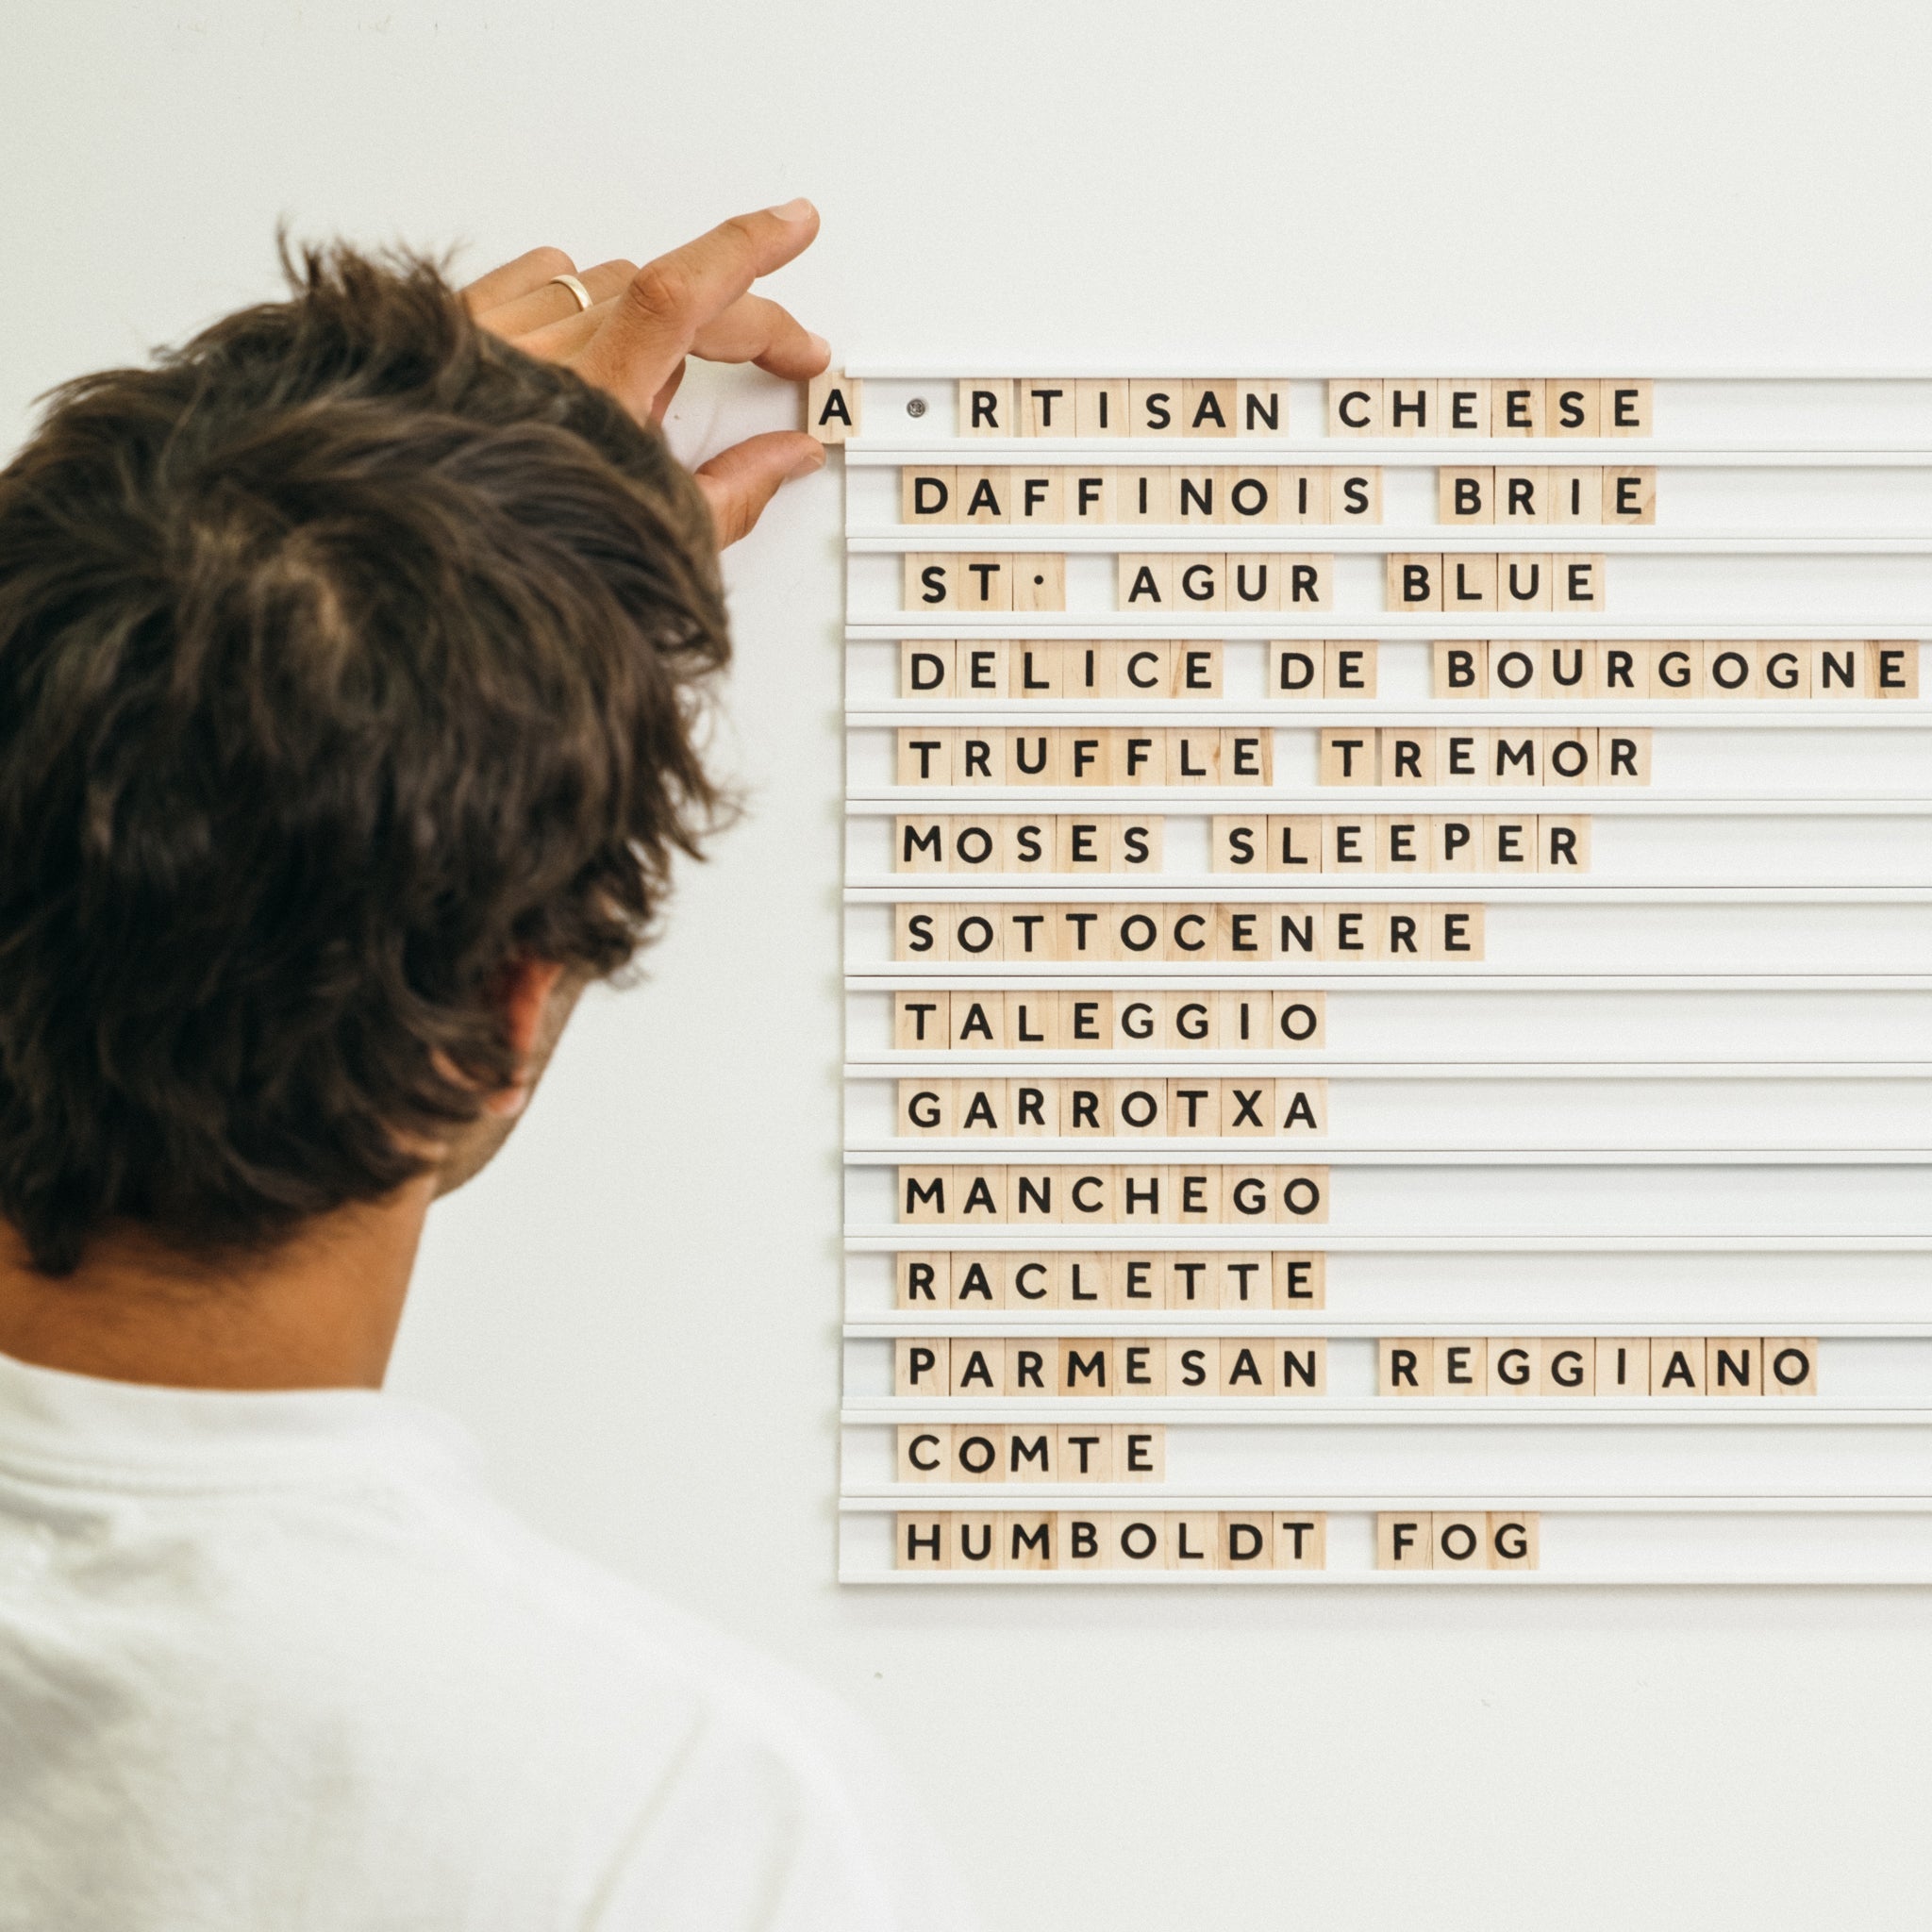 ARTISAN CHEESE
DAFFINOIS BRIE
ST· AGUR BLUE
DELICE DE BOURGOGNE
TRUFFLE TREMOR
MOSES SLEEPER
SOTTOCENERE
TALEGGIO
GARROTXA
MANCHEGO
RACLETTE
PARMESAN REGGIANO
COMTE
HUMBOLDT FOG